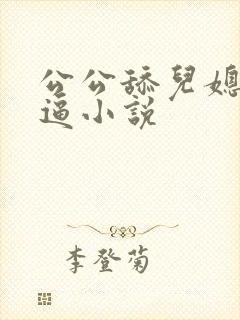 公公舔兒媳
逼小説
李登菊